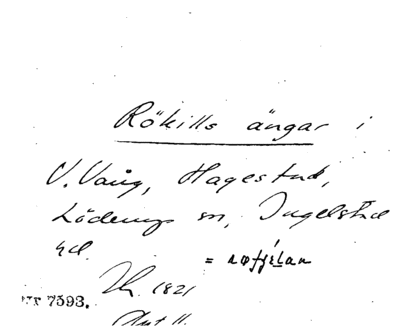 Rökills ängar i
V. Vång, Hagestad,
Löderups sn, Ingelstad
hd.
=
1821
nr 7593.